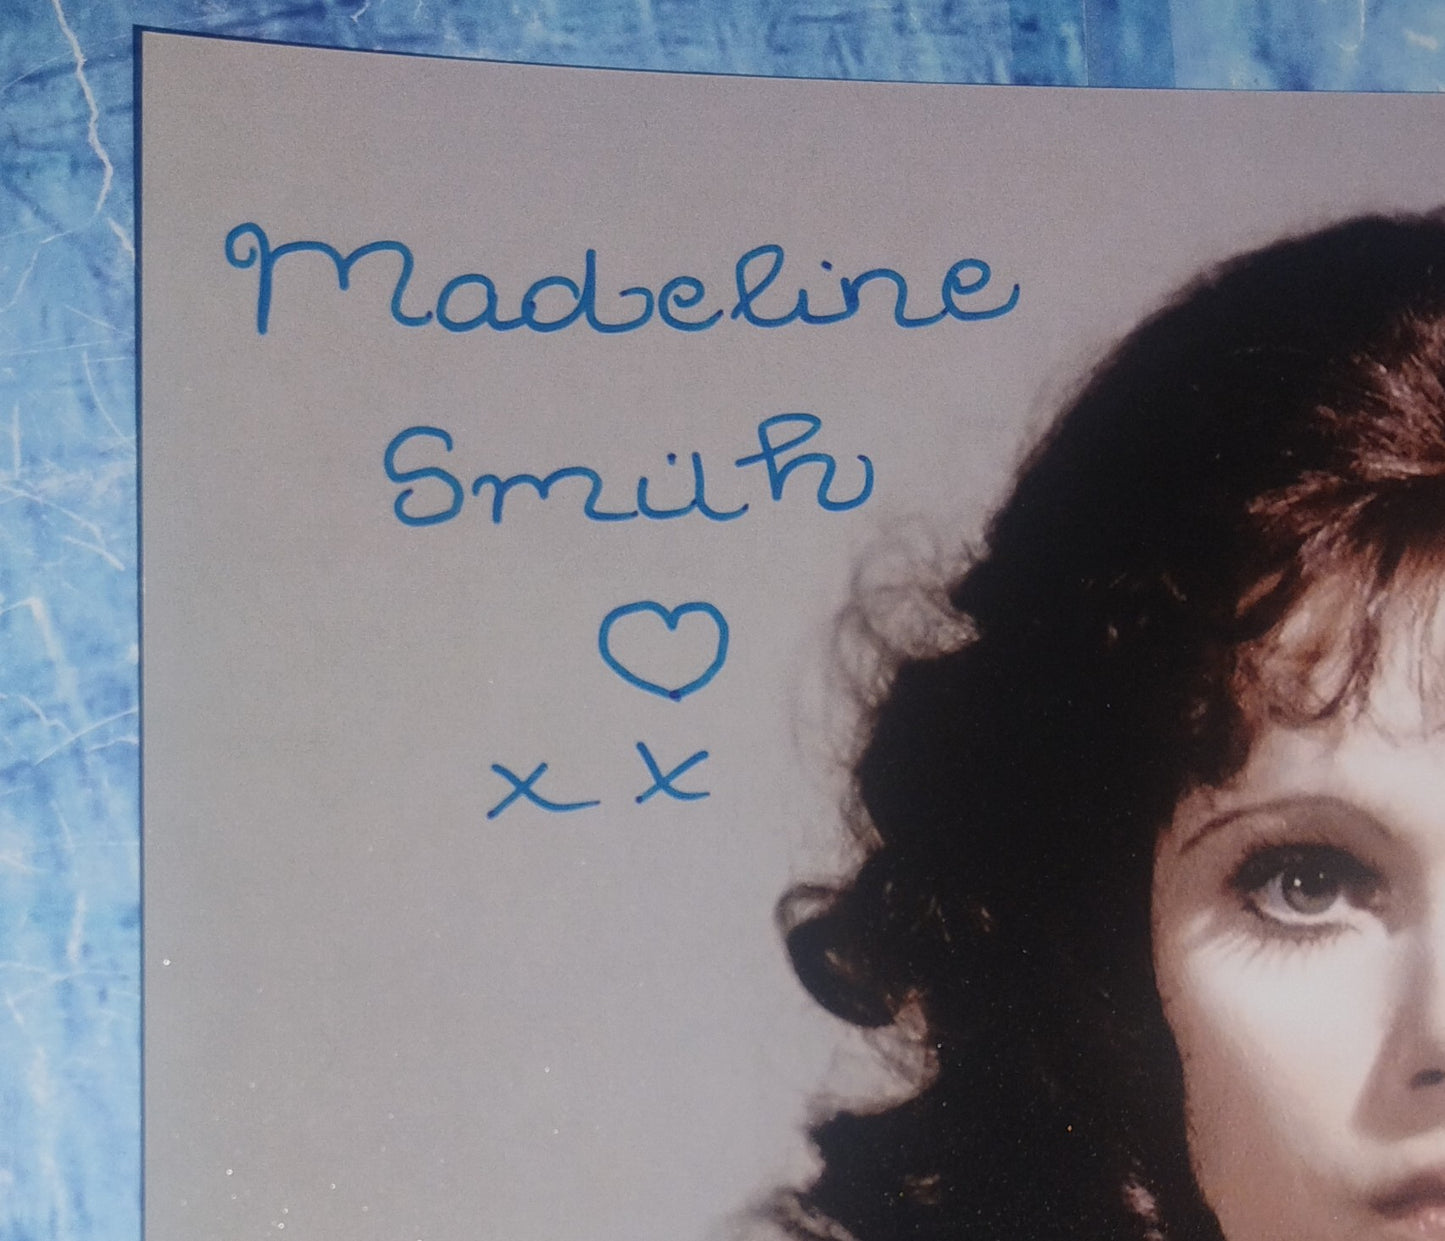 Madeline
Smith
♡
x x